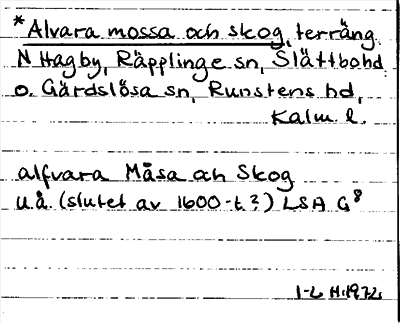 *Alvara mossa och skog, terräng
N Hagby, Räpplinge sn, Slättbo hd
o. Gärdslösa sn, Runstens hd,
Kalm l.
alfvara Måsa och Skog
u.å. (slutet av 1600-t?) LSA G⁸
I-L H.1972